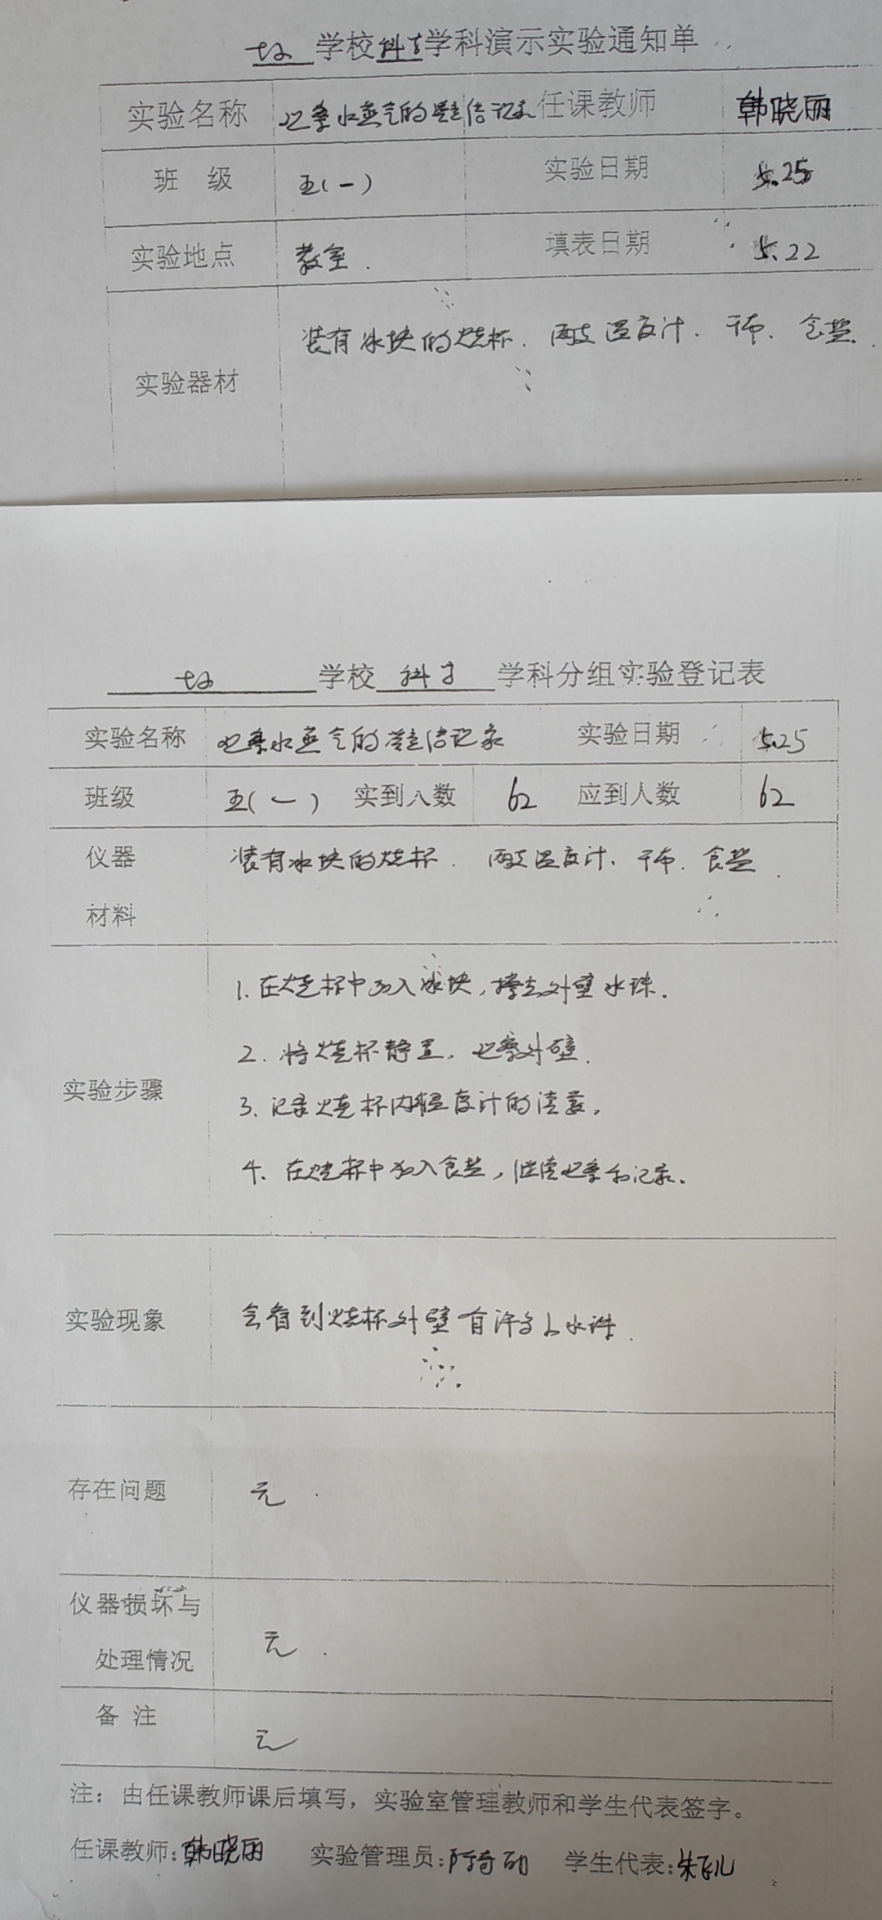 学校 科学 学科演示实验通知单
实验名称 观察水蒸气的凝结记录 任课教师 韩晓丽
班 级 五(一) 实验日期 5.25
实验地点 教室. 填表日期 5.22
装有冰块的烧杯. 两支温度计、干布、食盐.
实验器材
学校 科学 学科分组实验登记表
实验名称 观察水蒸气的凝结记录 实验日期 5.25
班级 五(一) 实到人数 62 应到人数 62
仪器 装有冰块的烧杯. 两支温度计、干布. 食盐.
材料
1.在烧杯中加入冰块,擦去外壁水珠.
2.将烧杯静置,观察外壁.
3.记录烧杯内温度计的读数。
实验步骤
4.在烧杯中加入食盐,继续观察和记录.
实验现象 会看到烧杯外壁有许多小水珠.
存在问题 无.
仪器损坏与
处理情况 无.
备 注 无
注:由任课教师课后填写,实验室管理教师和学生代表签字。
任课教师:韩晓丽 实验管理员: 学生代表: